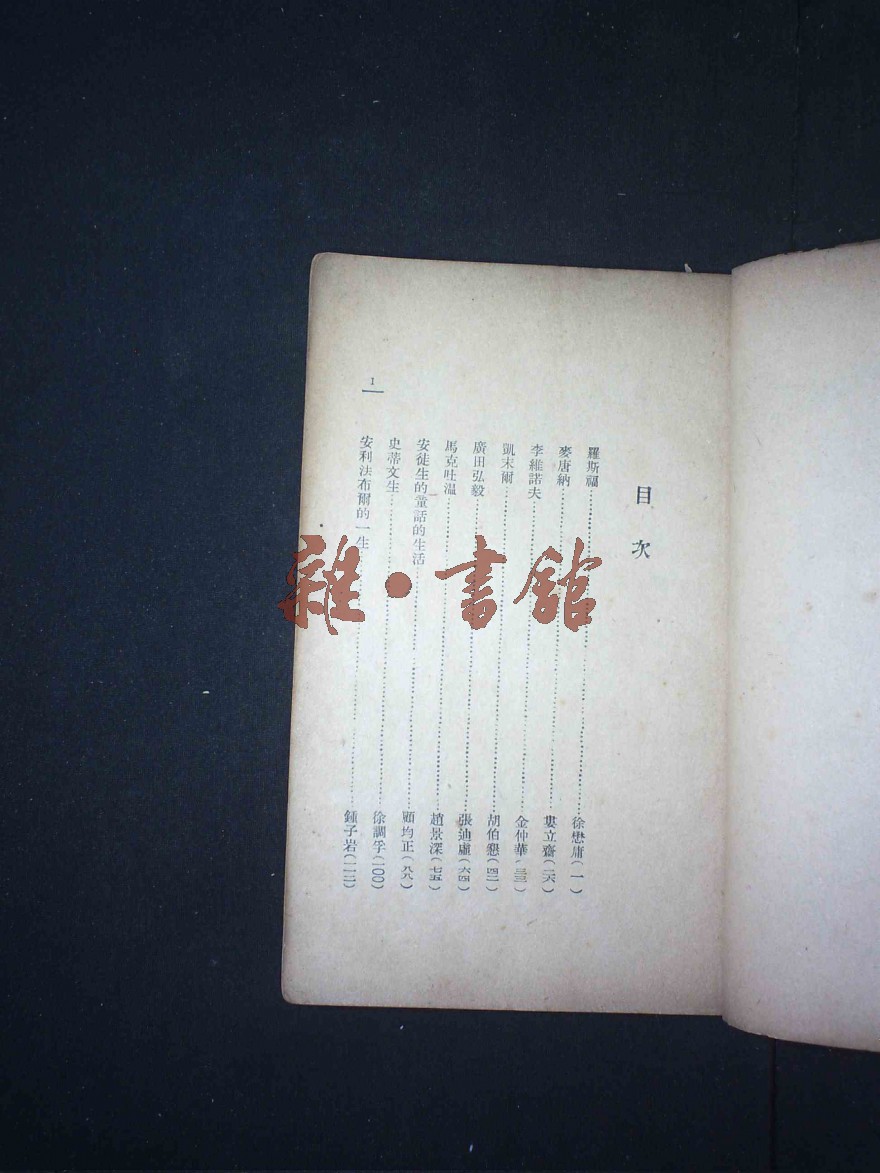 目次
羅斯福……徐懋庸(一)
麥唐納……婁立齋(二六)
李維諾夫……金仲華(三三)
凱末爾……胡伯懇(四二)
廣田弘毅……張迪虛(六四)
馬克吐溫……趙景深(七五)
安徒生的童話的生活……顧均正(八九)
史蒂文生……徐調孚(一〇〇)
安利法布爾的一生……鍾子岩(一一二)
1
雜·書館